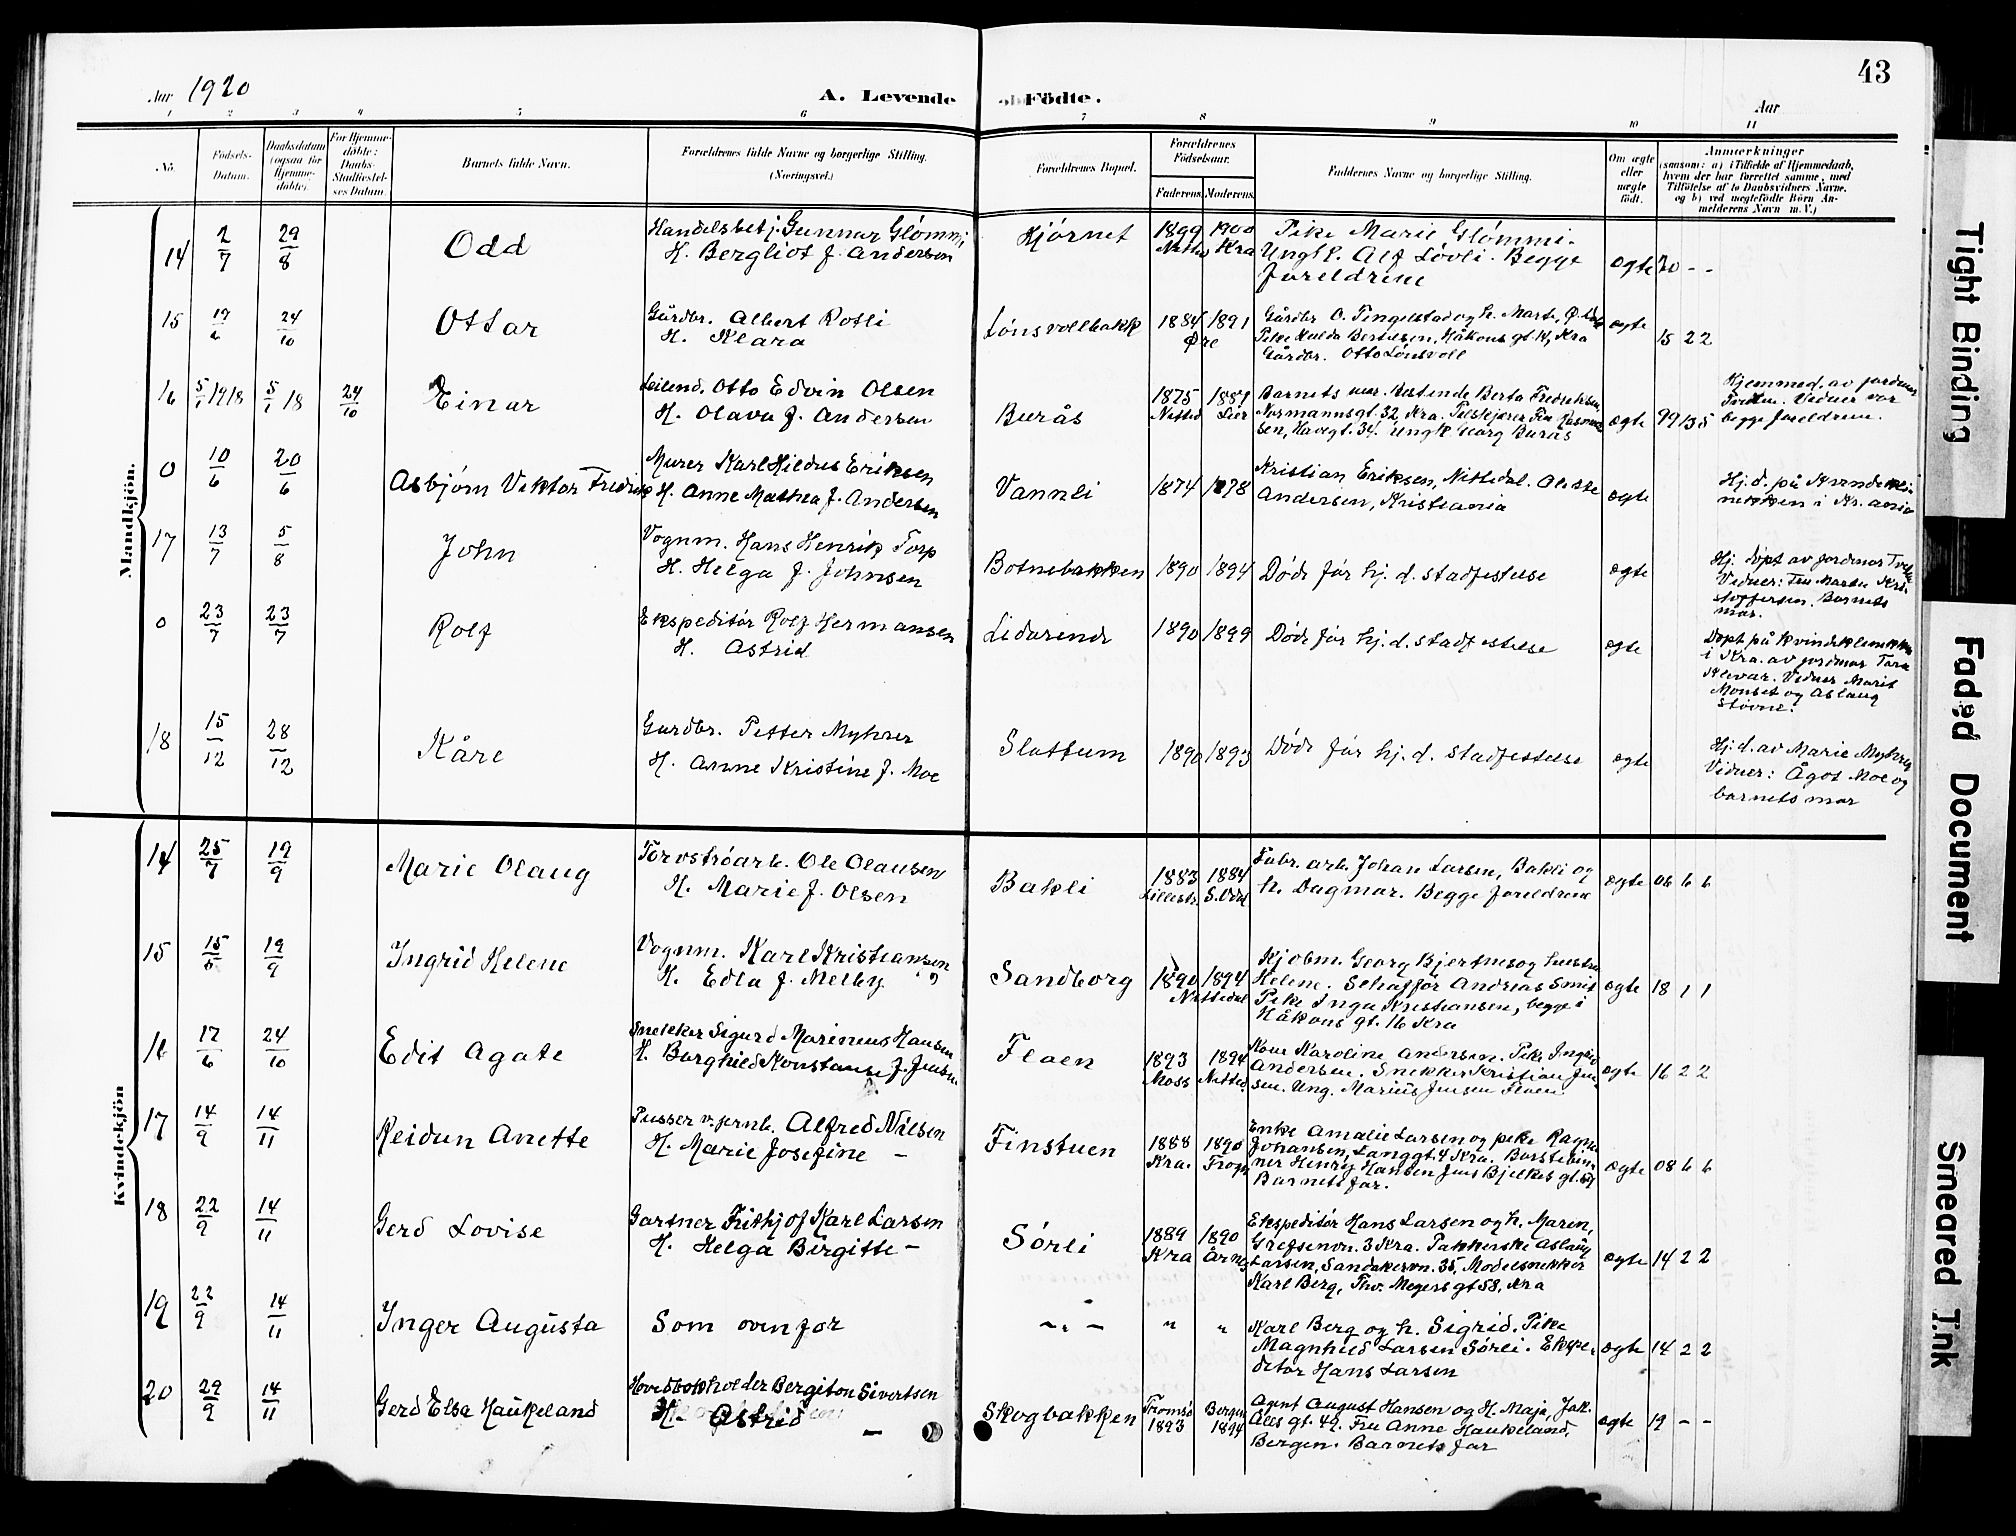 43
Aar 1920
A. Levende
Födte.
Aar
1 2 3 4 5 6 7 8 9 10 11
No.
Födsels-
Datum.
Daabsdatum
(ogsaa for
Hjemme-
döbte).
For Hjemme-
döbte:
Daabs-
Stadfæstel-
ses Datum.
Barnets fulde Navn.
Forældrenes fulde Navne og borgerlige Stilling.
(Næringsvei.)
Forældrenes Bopæl.
Forældrenes
Födselsaar.
Faderens. Moderens.
Faddernes Navne og borgerlige Stilling.
Om ægte
eller
uægte
födt.
Anmærkninger
(saasom: a) i Tilfælde af Hjemmedaab,
hvem der har forrettet samme, med
Tilföielse af to Daabsvidners Navne,
og b) ved uægtefödte Börn An-
melderens Navn m. V.)
Mandkjön.
14 2/7 29/8 Odd
Handelsbetj. Gunnar Glömmi
H. Bergliot f. Andersen
Hjörnet
1899 1900
Nitted Kra
Pike Marie Glömmi.
Ungk. Alf Lövli. Begge
foreldrene
ægte 20 - -
15 17/6 24/10 Ottar
Gårdbr. Albert Rotli
H. Klara
Lönsvollbakk
1884 1891
Øre
Gårdbr. O. Tingelstad og h. Marte,
Pike Hulda Bertelsen, Håkons gt. 14, Kra
Gårdbr. Otto Lönsvoll
ægte 15 2 2
16 5/1 1918 5/1 18 24/10 Einar
Leilend. Otto Edvin Olsen
H. Olava f. Andersen
Burås
1875 1881
Nitted Lier
Barnets mor. Bestinde Berta Fredriksen,
Normannsgt. 32, Kra.
sen, Havegt. 34. Ungk. Georg Burås
ægte 99 13 5
Hjemmed. av jordmor
Vidner var
begge foreldrene.
0 10/6 20/6 Asbjörn Viktor Fredrik
Murer Karl Hildus Eriksen
H. Anne Mathea f. Andersen
Vannli
1874 1878
Kristian Eriksen, Nittedal.
Andersen, Kristiania
ægte
Hj. d. på Kvindekli-
nekken i Kr.ania
17 13/7 5/8 John
Vognm. Hans Henrik Torp
H. Helga f. Johnsen
Botnebakken
1890 1894
Döde för hj. d. stadfestelse
ægte
Hj. döpt av jordmor
Vidner: Fru Marte Kri-
stoffersen. Barnets
mor.
0 23/7 23/7 Rolf
Ekspeditör Rolf Hermansen
H. Astrid
Lidarende
1890 1899
Döde för hj. d. stadfestelse
ægte
Döpt på kvindeklinekken
i Kra. av jordmor Tora
Klevar. Vidner Marit
Monset og Aslaug
Stövne.
18 15/12 28/12 Kåre
Gardbr. Petter Myhrer
H. Anne Kristine f. Moe
Slattum
1890 1893
Döde för hj. d. stadfestelse
ægte
Hj. d. av Marie Myhrer
Vidner: Ågot Moe og
barnets mor
Kvindekjön
14 25/7 19/9 Marie Olaug
Torvströarb. Ole Olausen
H. Marie f. Olsen
Bakli
1883 1884
Lillestr.
Fabr. arb. Johan Larsen, Bakli og
h. Dagmar. Begge foreldrene
ægte 06 6 6
15 15/5 19/9 Ingrid Helene
Vognm. Karl Kristiansen
H. Edla f. Melby
Sandborg
1890 1894
Nittedal
Kjöbm. Georg Bjertnes og hustru
Helene. Schafför Andreas Smit
Pike Inga Kristiansen, begge i
Håkons gt. 16 Kra
ægte 18 1 1
16 17/6 24/10 Edit Agate
Snekker Sigurd Marinius Hansen
H. Borghild Konstanse f. Jensen
Floen
1893 1894
Moss Nitted.
Kone Karoline Andersen. Pike Ingrid
Andersen. Snekker Kristian Jen-
sen. Ung. Marius Jensen Floen.
ægte 16 2 2
17 14/9 14/11 Reidun Anette
Pusser v. jernb. Alfred Nilsen
H. Marie Josefine -
Finstuen
1888 1890
Kra. Trogst.
Enke Amalie Larsen og pike Ragna
Johansen, Langgt. 4 Kra. Børstebin-
ner Henry Hansen Jens Bjelkes gt.
Barnets far.
ægte 08 6 6
18 22/9 14/11 Gerd Lovise
Gartner Frithjof Karl Larsen
H. Helga Birgitte -
Sörli
1889 1890
Kra Årnes
Ekspeditör Hans Larsen og h. Maren,
Grefsenvn. 3 Kra. Pakkerske Aslaug
Larsen, Sandakervn. 35, Modelsnekker
Karl Berg, Thv. Meyers gt 58, Kra
ægte 14 2 2
19 22/9 14/11 Inger Augusta
Som ovenfor
- " - " "
Karl Berg og h. Sigrid. Pike
Magnhild Larsen Sörli. Ekspe-
ditör Hans Larsen
ægte 14 2 2
20 29/9 14/11 Gerd Elsa Haukeland
Hovedbokholder Bergiton Sivertsen
H. Astrid -
Skogbakken
Tromsö Bergen
1893 1894
Agent August Hansen og H. Maja, Jak.
Alls gt. 49. Fru Anne Haukeland,
Bergen. Barnets far
ægte 19 - -
Tight Binding
Faded Document
Smeared Ink